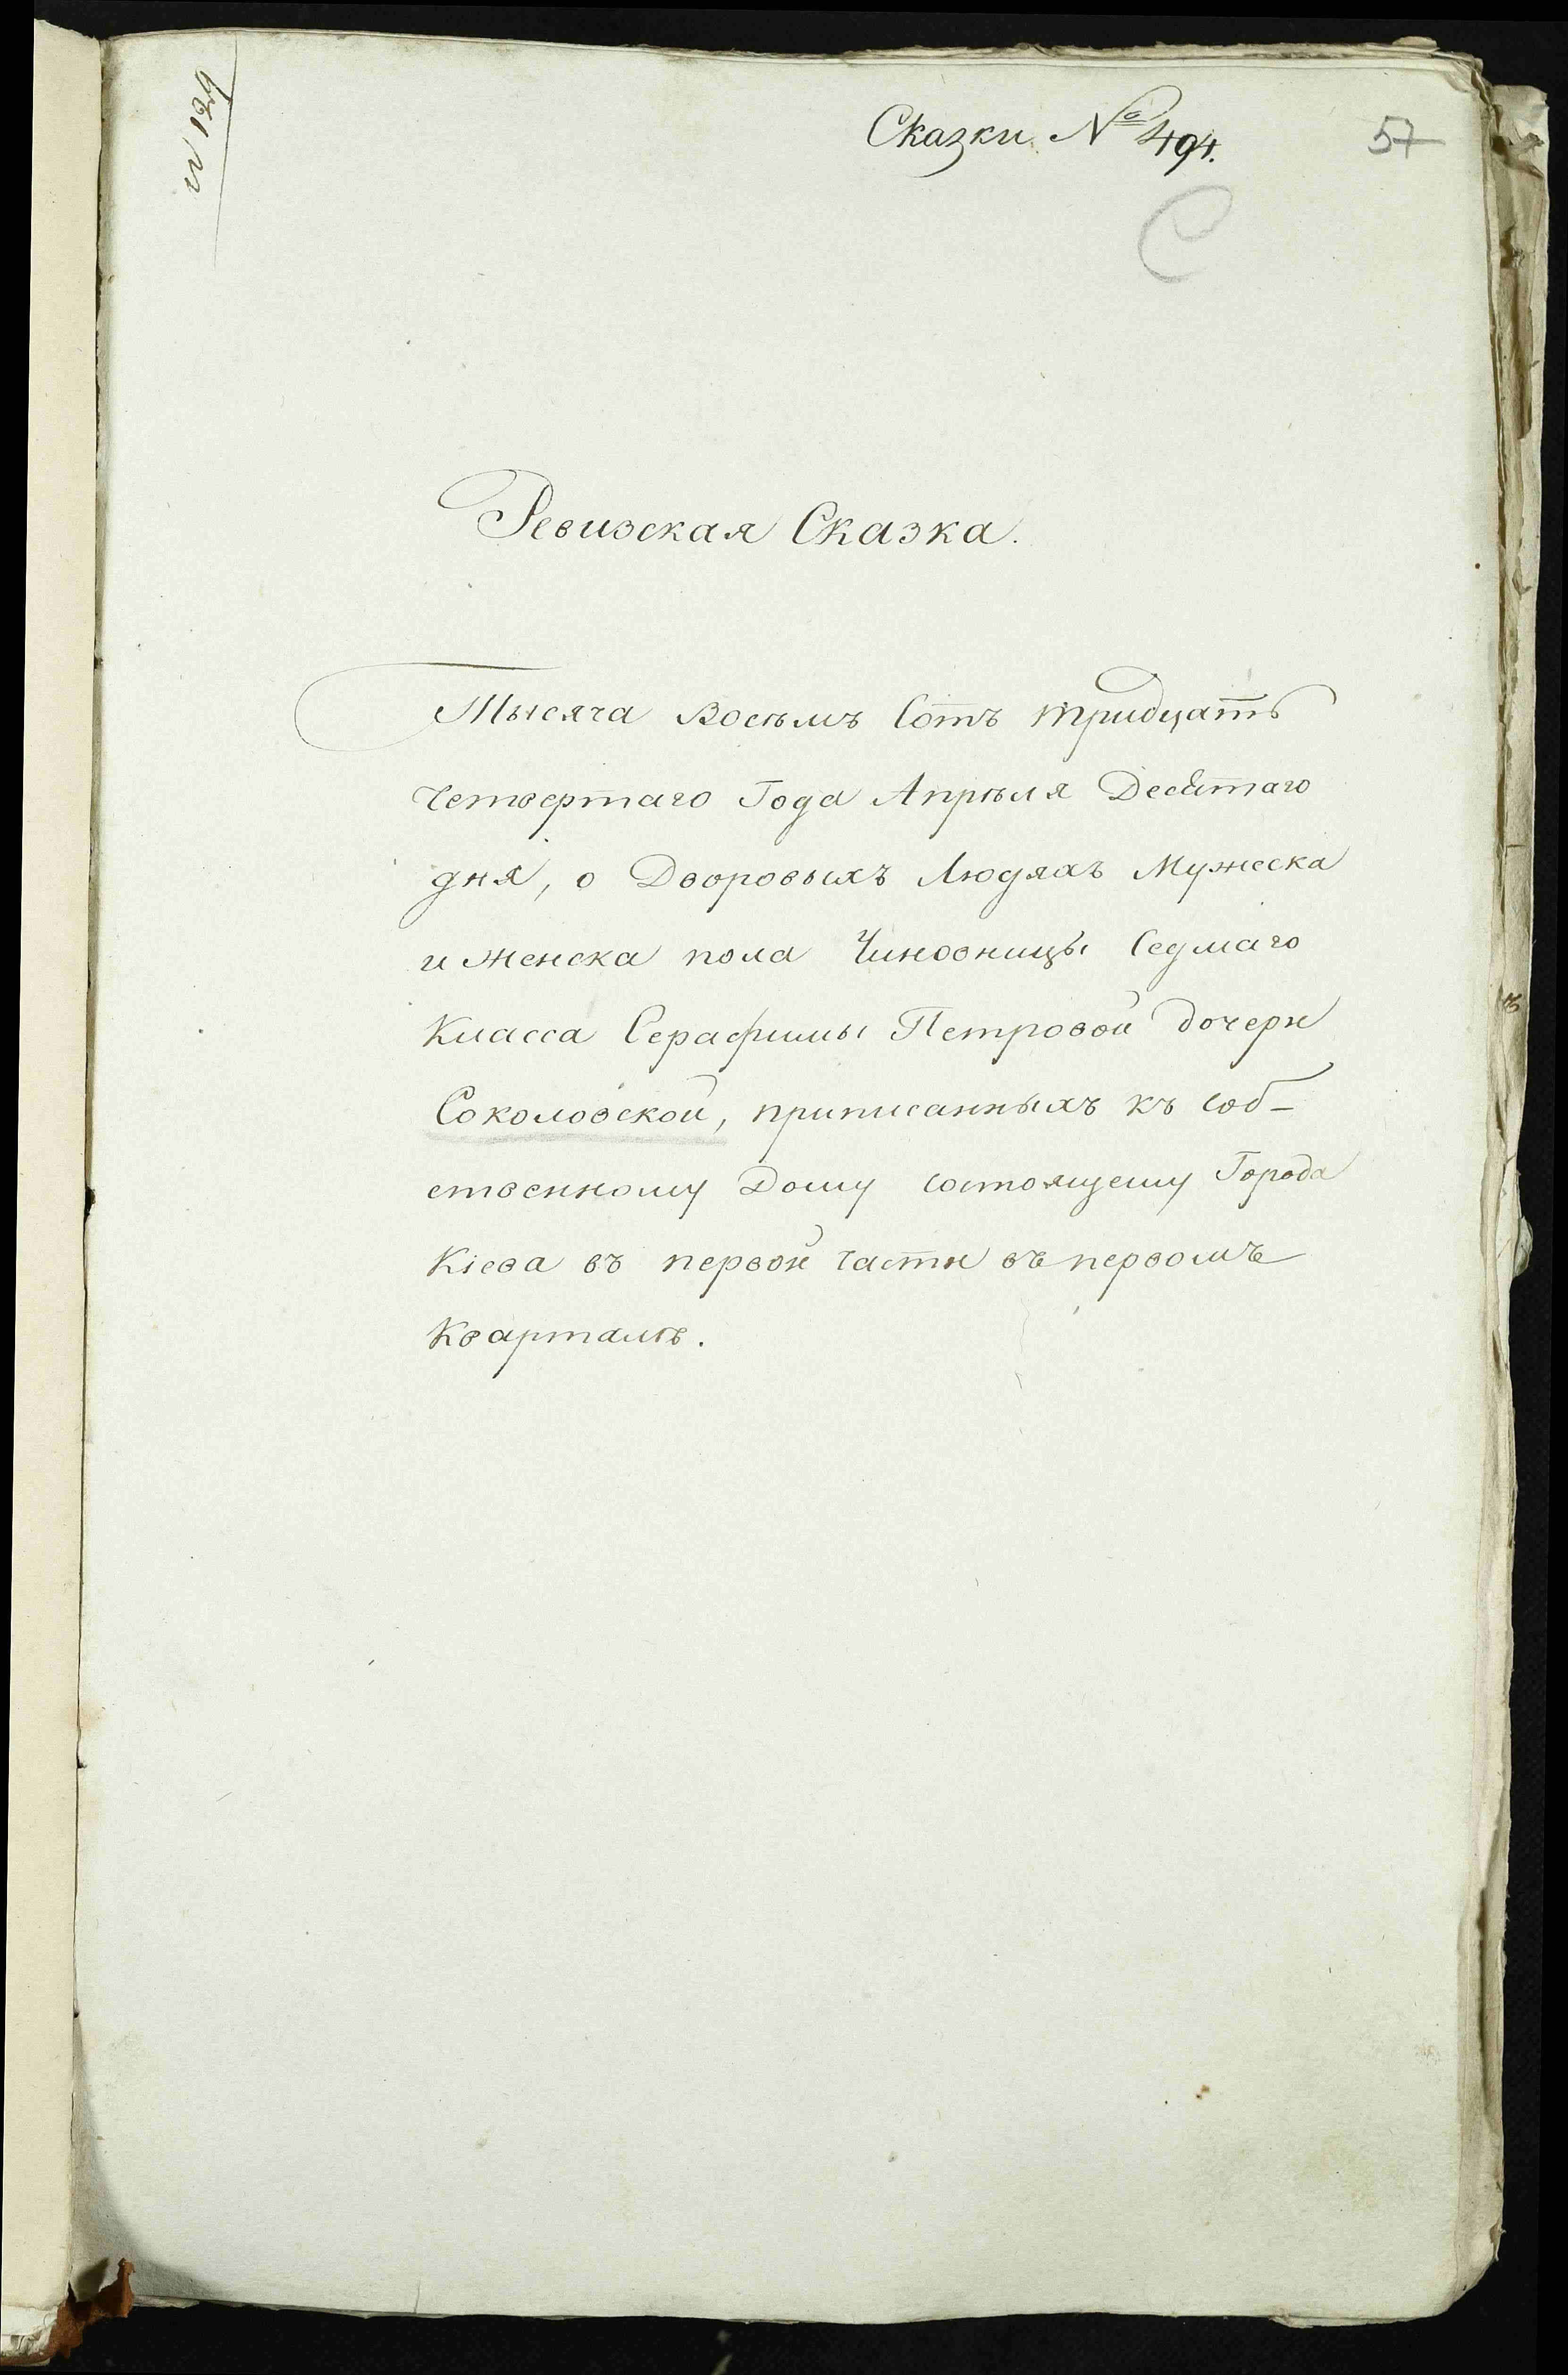 № 129
Сказки № 494.
57
С
Ревизская Сказка.
Тысяча Восѣмъ Сотъ тридцать
четвертаго Года Апрѣля Десятаго
дня, о Дворовыхъ Людяхъ Мужеска
и Женска пола Чиновницы Седмаго
Класса Серафимы Петровой дочери
Соколовской, приписанныхъ къ соб-
ственному Дому состоящему Города
Кіева въ первой части въ первомъ
Кварталѣ.